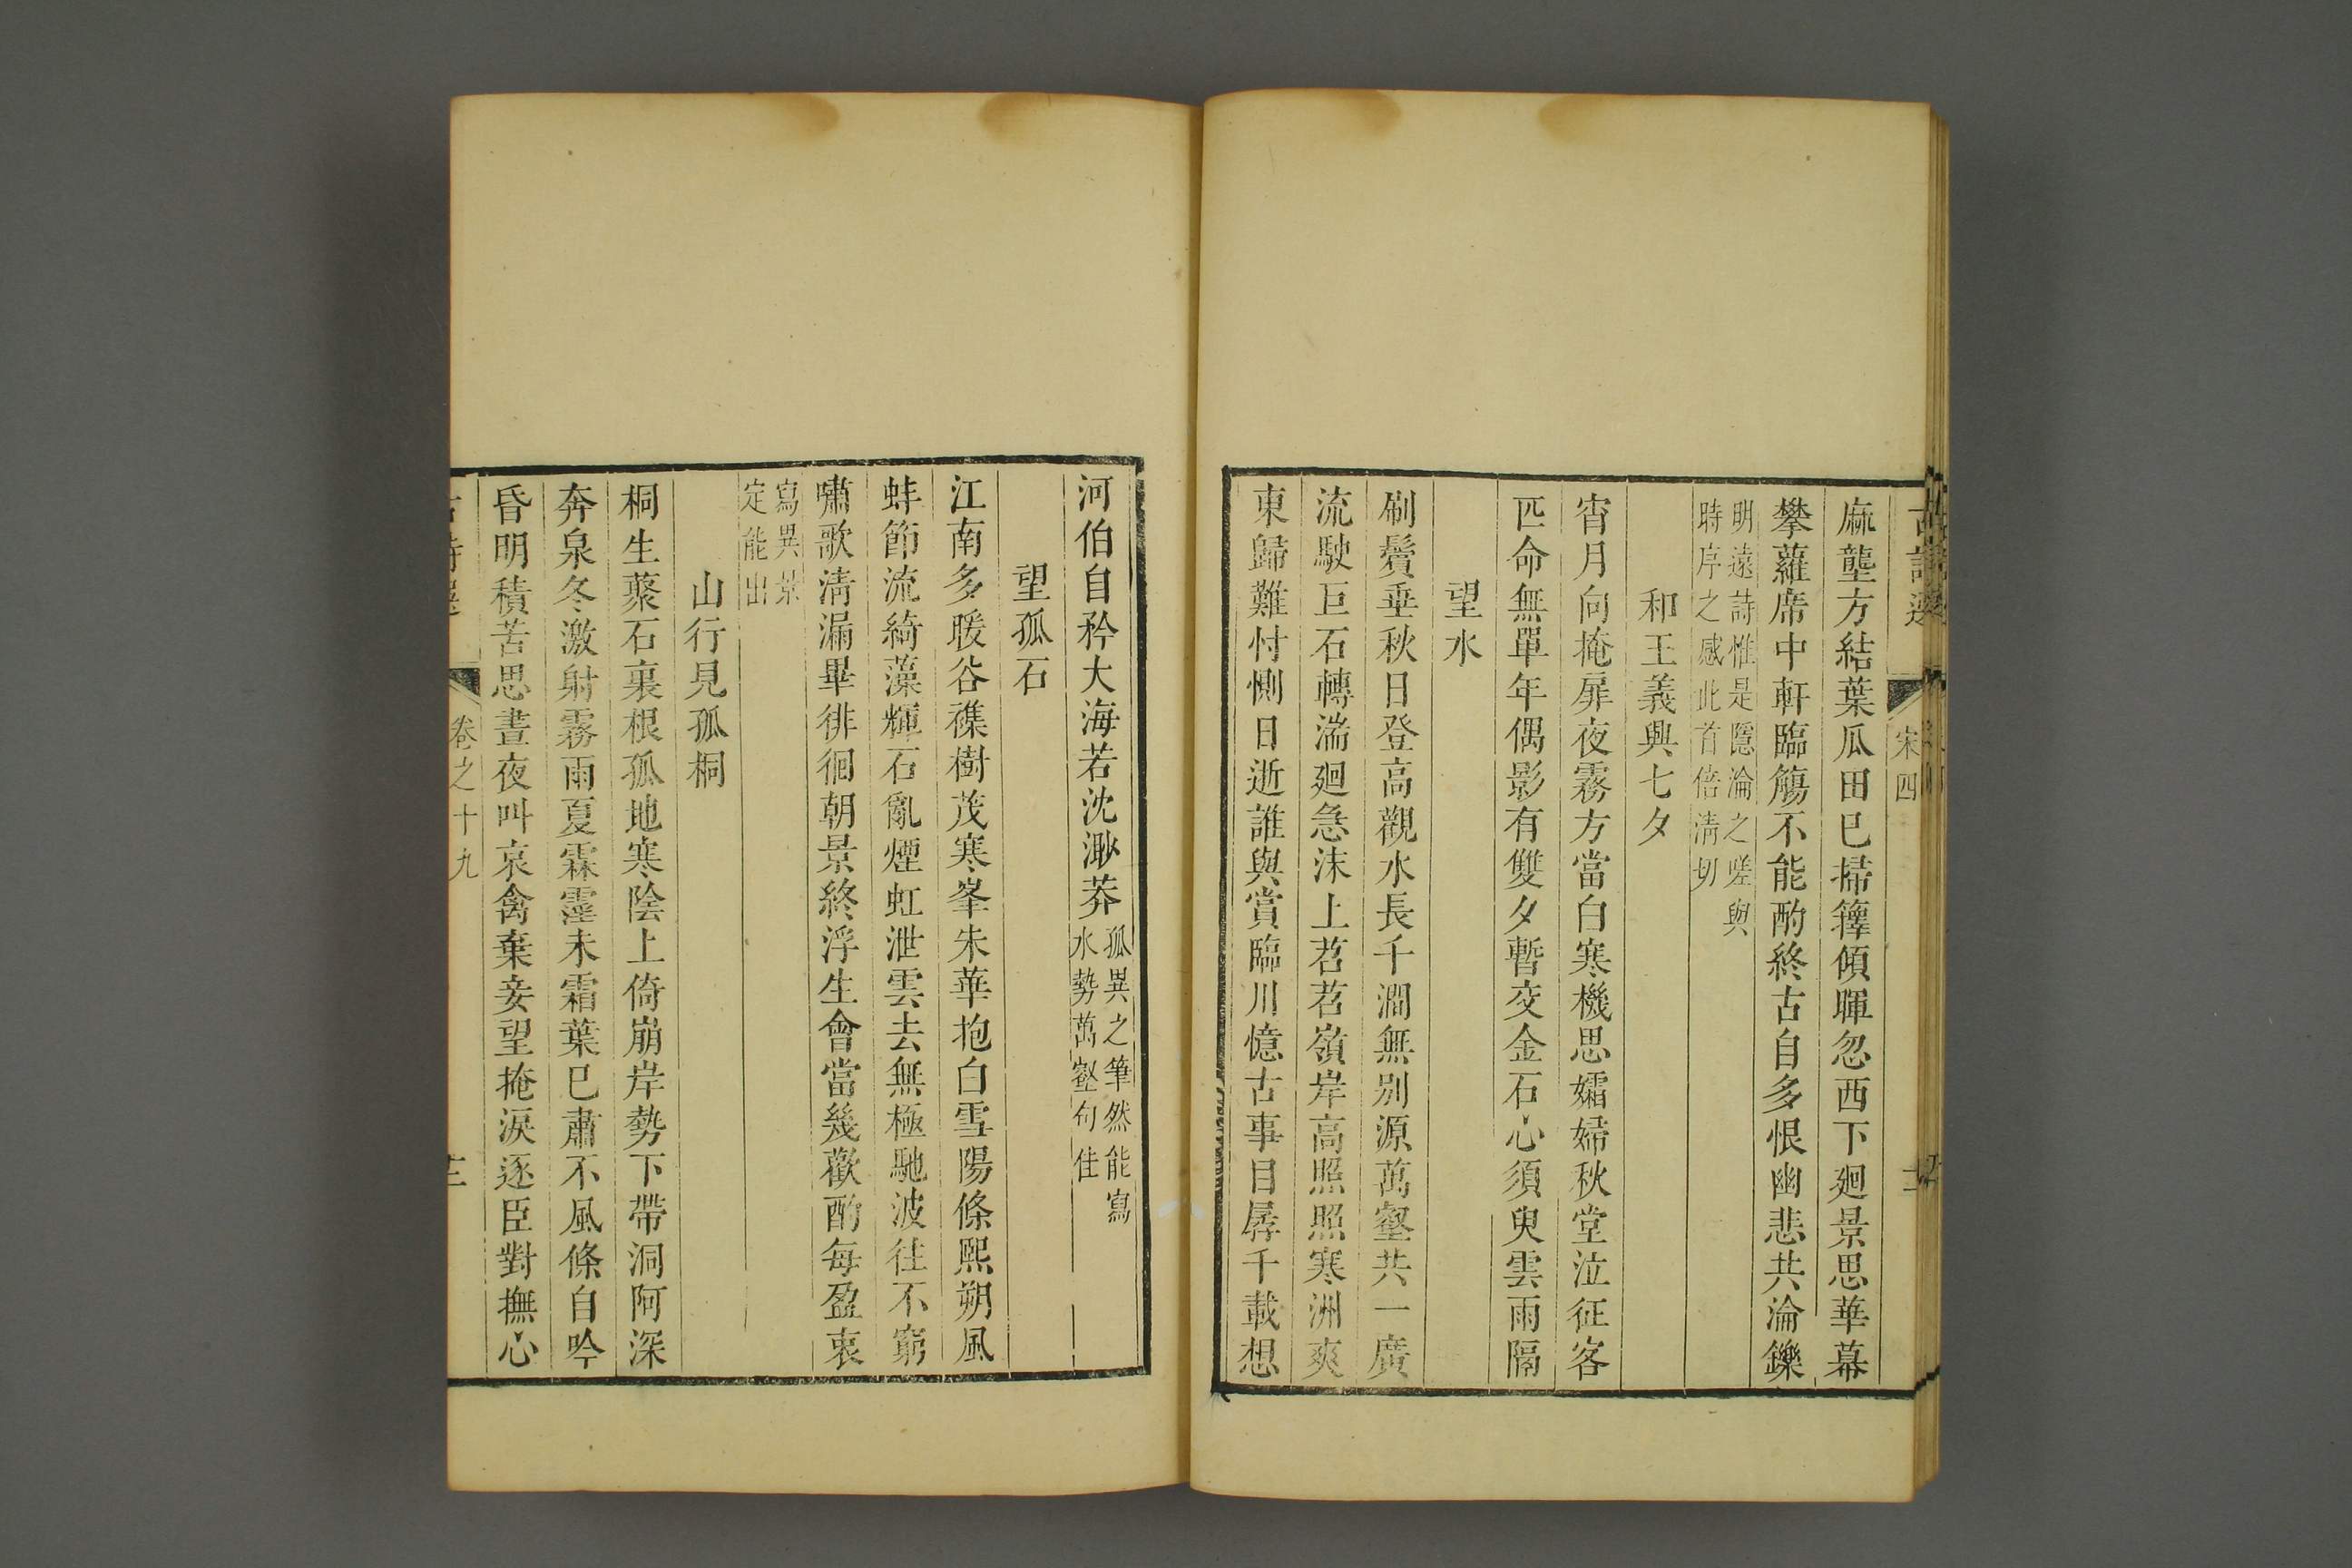 宋四
麻壟方結葉瓜田已掃籜傾暉忽西下廻景思華幕
攀蘿席中軒臨觴不能酌終古自多恨幽悲共淪鑠
明遠詩惟是隱淪之嗟與
時序之感此首倍淸切
和王義興七夕
宵月向掩扉夜霧方當白寒機思孀婦秋堂泣征客
匹命無單年偶影有雙夕暫交金石心須臾雲雨隔
望水
刷鬢垂秋日登高觀水長千澗無別源萬壑共一廣
流駛巨石轉湍廻急沫上苕苕嶺岸高照照寒洲爽
東歸難忖惻日逝誰與賞臨川憶古事目孱千載想
河伯自矜大海若沈渺莽
孤異之筆然能寫
水勢萬壑句佳
望孤石
江南多暖谷襍樹茂寒峯朱華抱白雪陽條熙朔風
蚌節流綺藻輝石亂煙虹泄雲去無極馳波往不窮
嘯歌淸漏畢徘徊朝景終浮生會當幾歡酌每盈衷
寫異景
定能出
山行見孤桐
桐生藂石裏根孤地寒陰上倚崩岸勢下帶洞阿深
奔泉冬激射霧雨夏霖霪未霜葉已肅不風條自吟
昏明積苦思晝夜叫哀禽棄妾望掩淚逐臣對撫心
卷之十九